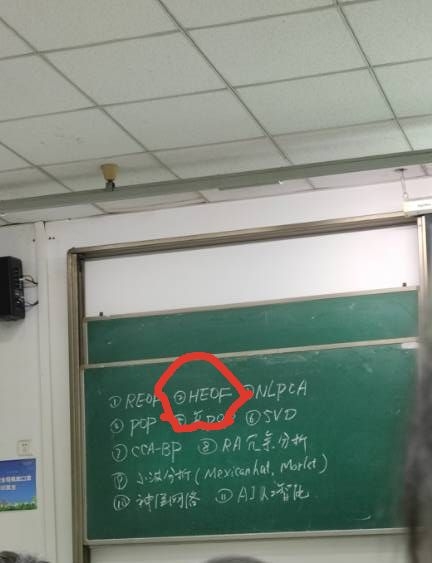 ① REOF ② HEOF ③ NLPCA
④ POP ⑤ POP ⑥ SVD
⑦ CCA-BP ⑧ RA冗余分析
⑨ 小波分析(Mexican hat, Morlet)
⑩ 神经网络 ⑪ AI人工智能